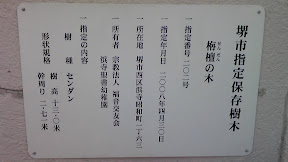 堺市指定保存樹木
せんだん
栴檀の木
一指定番号 二〇二号
一指定年月日 二〇〇八年四月三〇日
一所在地 堺市西区浜寺昭和町二丁
一所有者 宗教法人 福音交友会
浜寺聖書幼稚園
一指定の内容
樹種 センダン
形状規格 樹高 十三・〇米
幹周り 二・七〇米